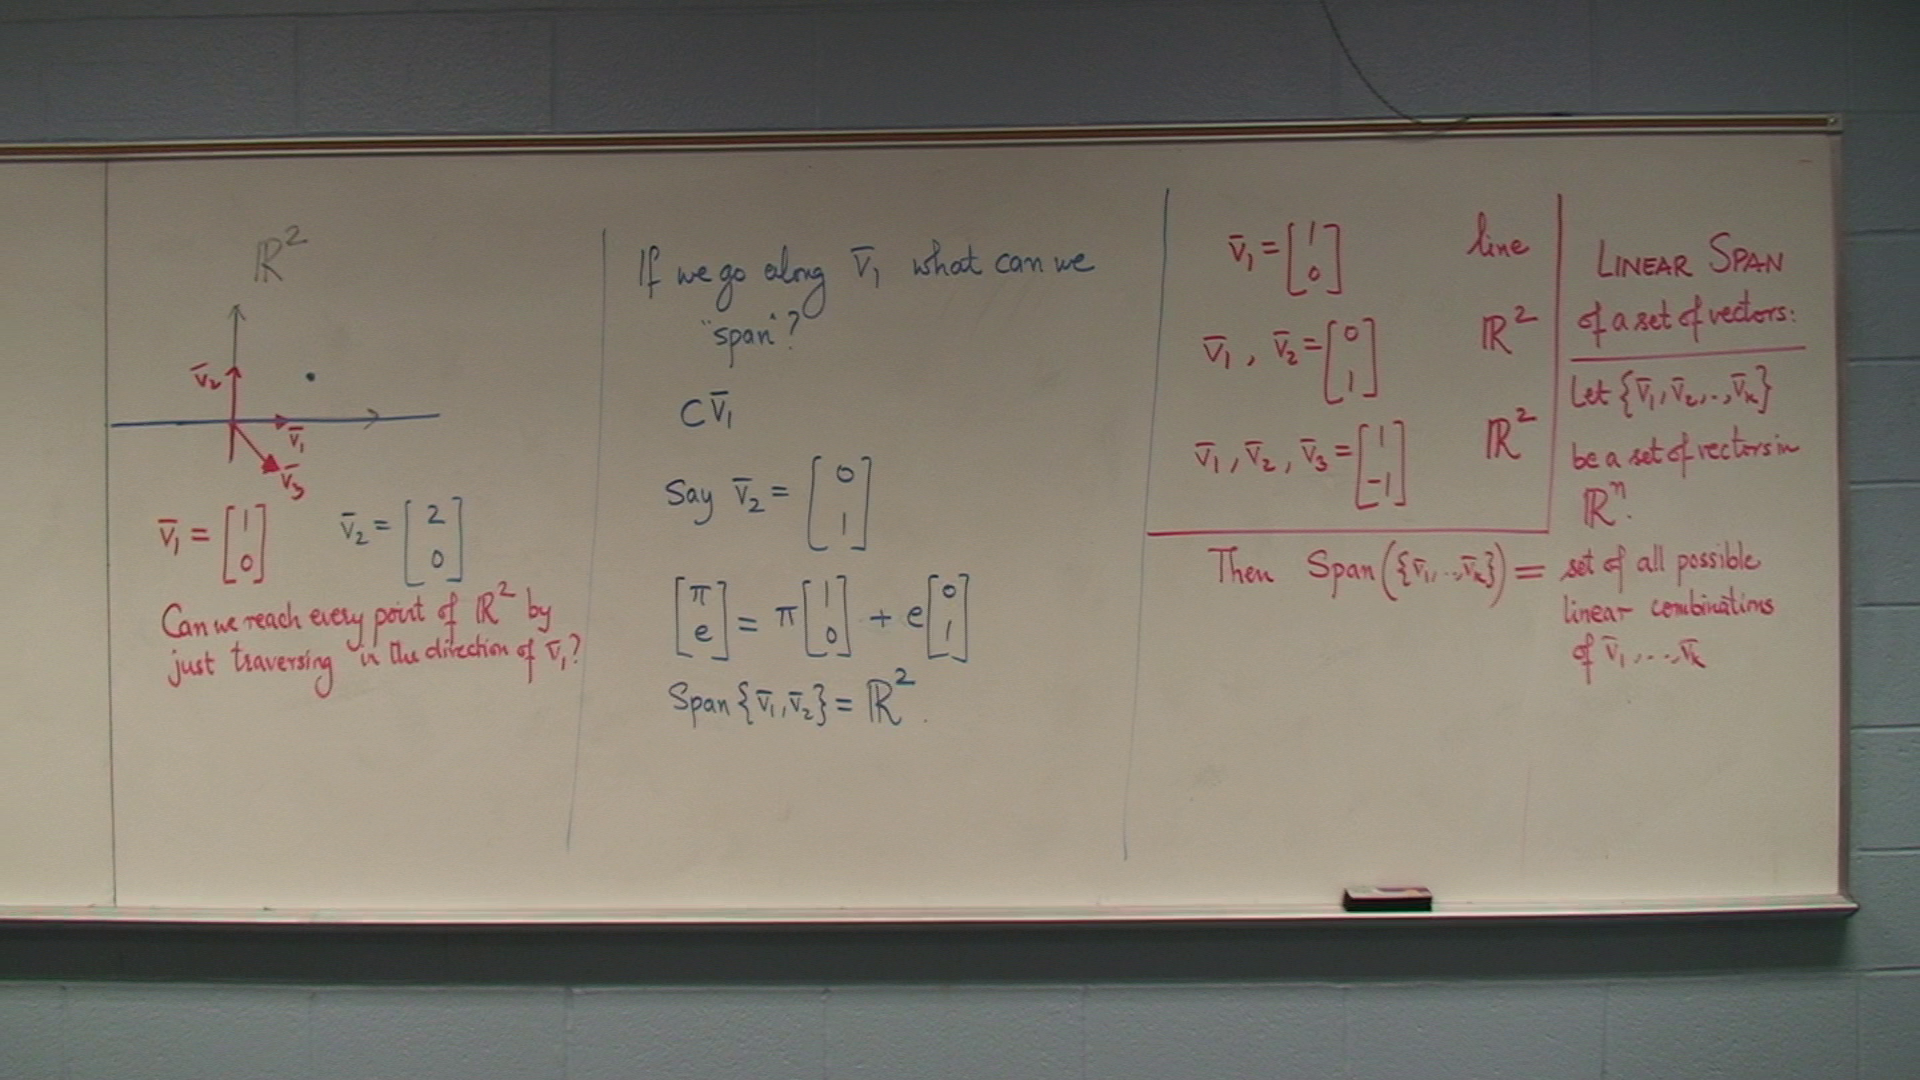 ℝ²
v̄₂
v̄₁
v̄₃
v̄₁ = [1 0]   v̄₂ = [2 0]
Can we reach every point of ℝ² by
just traversing in the direction of v̄₁?
If we go along v̄₁ what can we
"span"?
C v̄₁
Say v̄₂ = [0 1]
[π e] = π [1 0] + e [0 1]
Span {v̄₁, v̄₂} = ℝ².
v̄₁ = [1 0]   line
v̄₁, v̄₂ = [0 1]   ℝ²
v̄₁, v̄₂, v̄₃ = [1 -1]   ℝ²
LINEAR SPAN
of a set of vectors:
Let {v̄₁, v̄₂, .., v̄ₖ}
be a set of vectors in
ℝⁿ.
Then Span({v̄₁, .., v̄ₖ}) = set of all possible
linear combinations
of v̄₁, ..., v̄ₖ